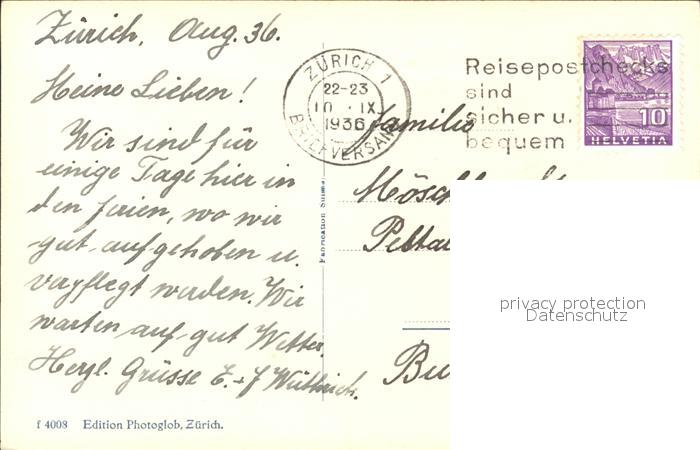 Zürich, Aug. 36.
Meine Lieben!
Wir sind für
einige Tage hier in
den Ferien, wo wir
gut aufgehoben u.
verpflegt werden. Wir
warten auf gut Wetter.
Herzl. Grüsse E. + J Wüthrich.
f 4008 Edition Photoglob, Zürich.
Fabrication Suisse
ZÜRICH 1
22-23
10. IX.
1936
BRIEFVERSAND
Reisepostchecks
sind
sicher u.
bequem
10
HELVETIA
Familie
privacy protection
Datenschutz